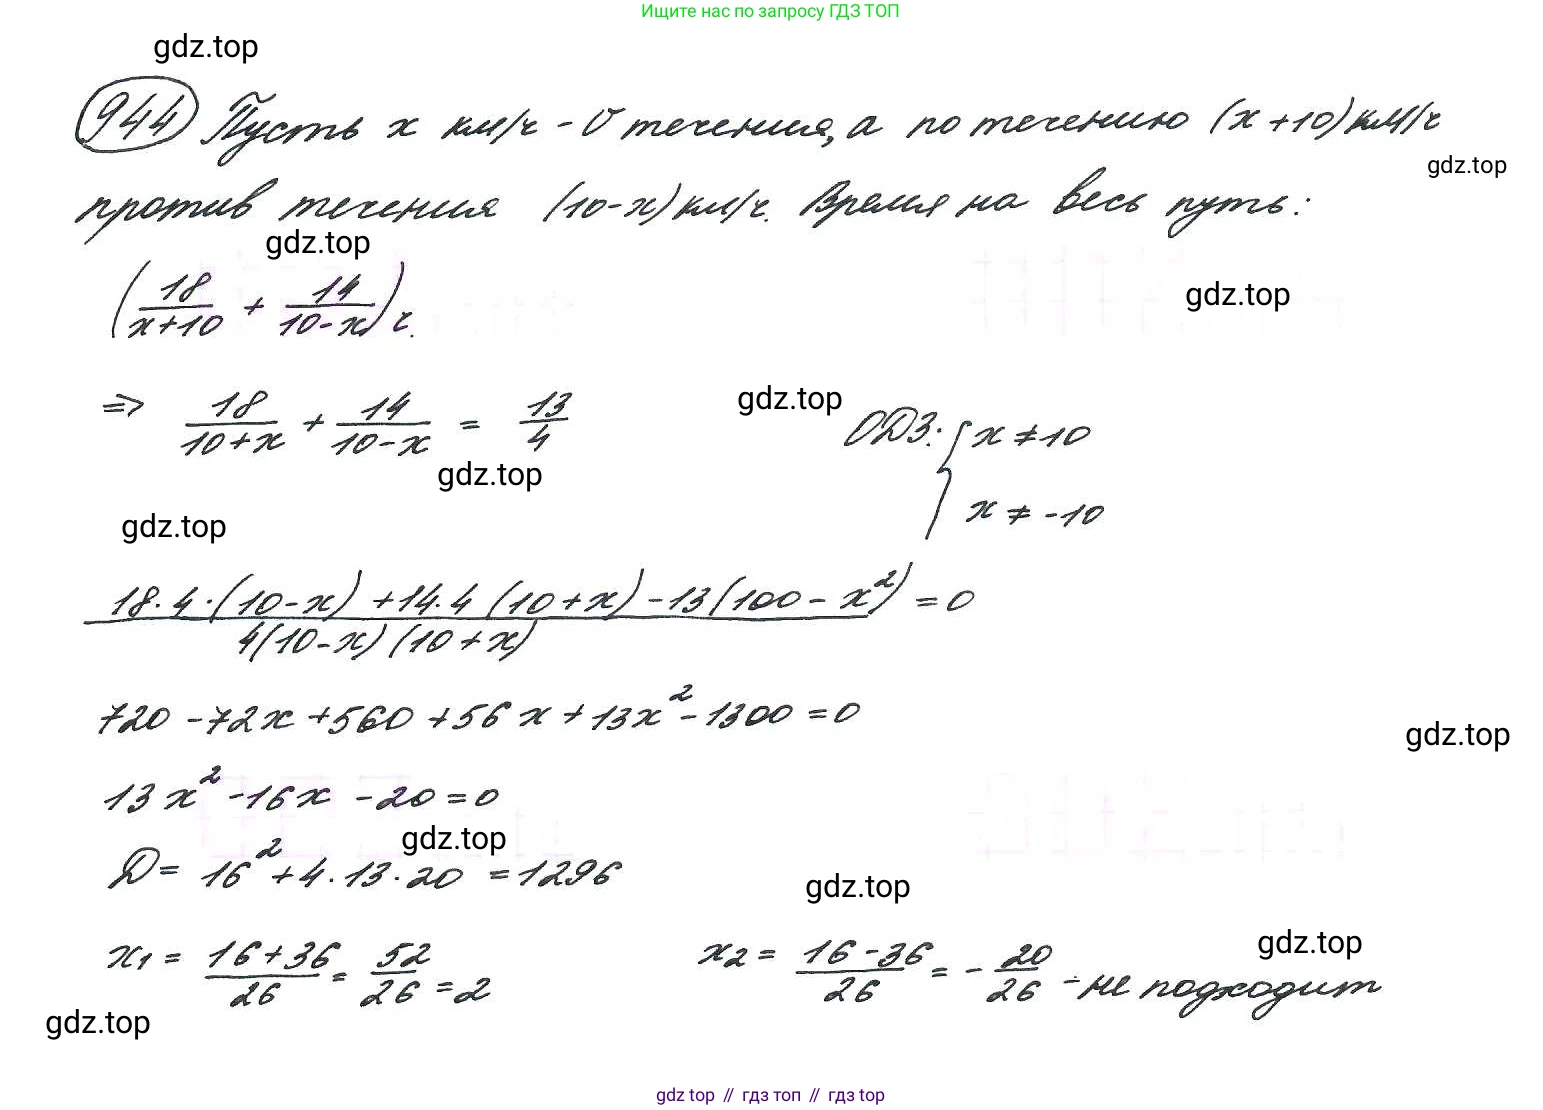 Ищите нас по запросу ГДЗ ТОП
gdz.top
944 Пусть x км/ч - v течения, а по течению (x+10) км/ч
gdz.top
против течения (10-x) км/ч. Время на весь путь:
gdz.top
(18/(x+10) + 14/(10-x)) ч.
gdz.top
=> 18/(10+x) + 14/(10-x) = 13/4
gdz.top
ОДЗ: { x ≠ 10
x ≠ -10
gdz.top
gdz.top
(18·4·(10-x) + 14·4(10+x) - 13(100-x²))/(4(10-x)(10+x)) = 0
720 - 72x + 560 + 56x + 13x² - 1300 = 0
gdz.top
13x² - 16x - 20 = 0
gdz.top
D = 16² + 4·13·20 = 1296
gdz.top
gdz.top
x₁ = (16+36)/26 = 52/26 = 2
x₂ = (16-36)/26 = -20/26 - не подходит
gdz.top
gdz top // гдз топ // гдз top